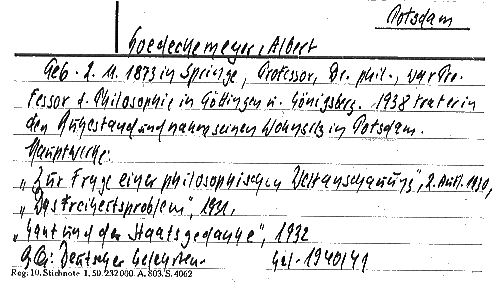 Potsdam
Goedeckemeyer, Albert
Geb. 2. 11. 1873 in Springe, Professor, Dr. phil., war Pro-
fessor d. Philosophie in Göttingen u. Königsberg. 1938 trat er in
den Ruhestand und nahm seinen Wohnsitz in Potsdam.
Hauptwerke:
"Zur Frage einer philosophischen Weltanschauung", 2. Aufl. 1930,
"Das Freiheitsproblem", 1931,
"Kant und der Staatsgedanke", 1932
Deutscher Gelehrten- 1940/41
Reg. 10. Stichnote 1. 50. 232 000. A. 803. S. 4062